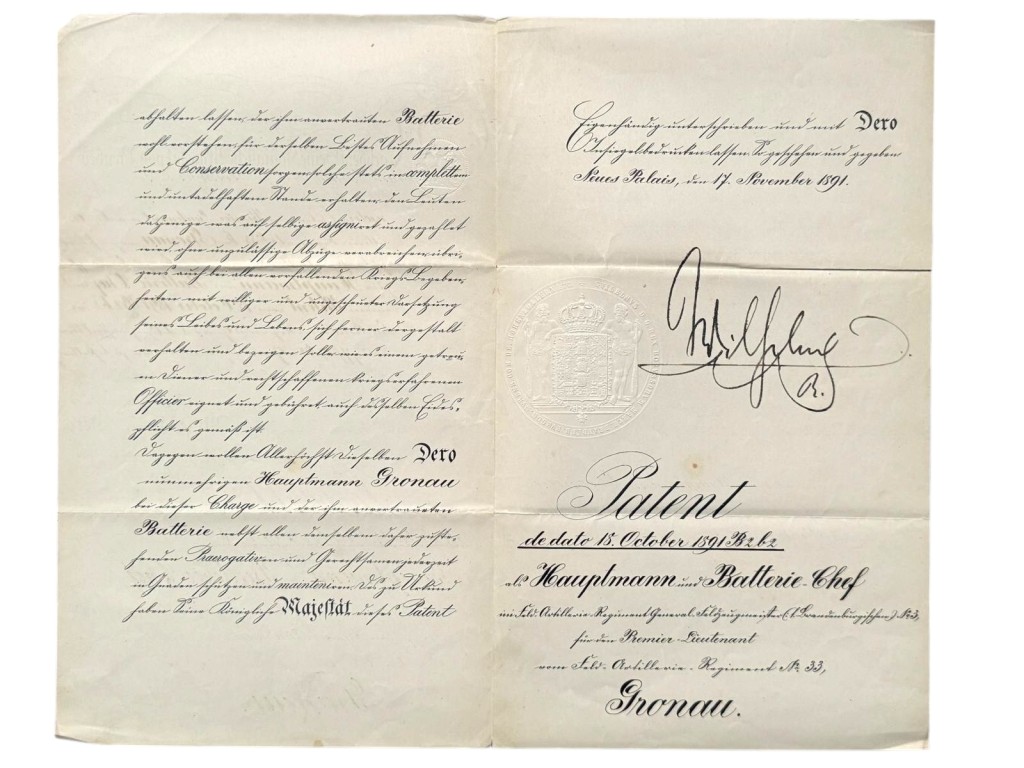 abhalten lassen, der ihm anvertrauten Batterie
wohl vorstehen, für derselben Bestes Aufnehmen
und Conservation sorgen, solche stets in completten
und untadelhaften Stande erhalten, den Leuten
dasjenige was auf selbige assigniret und gezahlet
wird ohne unzulässige Abzüge verabreichen, übri-
gens auch bei allen vorfallenden Kriegs Begeben-
heiten mit williger und ungescheuter Darsetzung
seines Leibes und Lebens sich ferner dergestalt
verhalten und bezeigen solle, wie es einem getreu-
en Diener und rechtschaffenen kriegserfahrenen
Officier eignet und gebühret, auch desselben Eides-
pflicht es gemäß ist.
Dagegen wollen Allerhöchst Dieselben Dero
nunmehrigen Hauptmann Gronau
bei dieser Charge und der ihm anvertraueten
Batterie nebst allen demselben daher zuste-
henden Praerogativen und Gerechtsamen jederzeit
in Gnaden schützen und mainteniren. Des zu Urkund
haben Seine Königliche Majestät dieses Patent
Eigenhändig unterschrieben und mit Dero
Insiegel bedrucken lassen. So geschehen und gegeben
Neues Palais, den 17. November 1891.
Wilhelm
R.
Patent
de dato 18. October 1891 B2b2
als Hauptmann und Batterie-Chef
im Feld-Artillerie-Regiment General-Feldzeugmeister (1. Brandenburgischen) Nr. 3,
für den Premier-Lieutenant
vom Feld-Artillerie-Regiment Nr. 33,
Gronau.